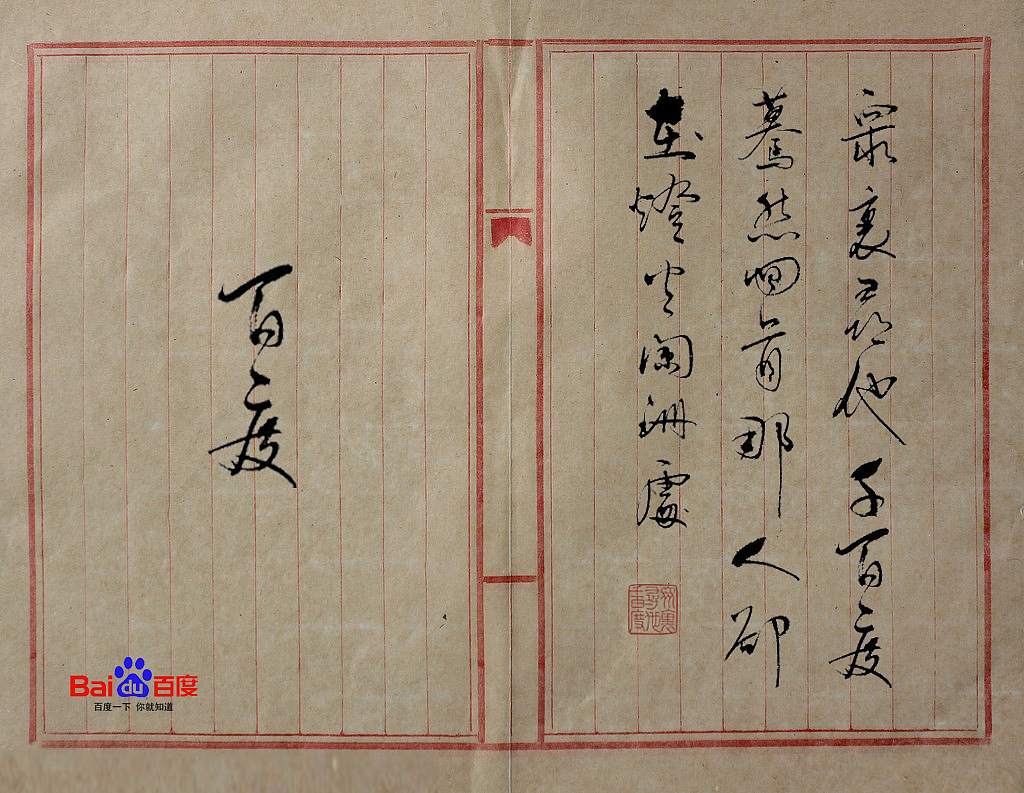 眾裏尋他千百度
驀然回首那人卻
在燈火闌珊處
百度
Bai du 百度
百度一下 你就知道